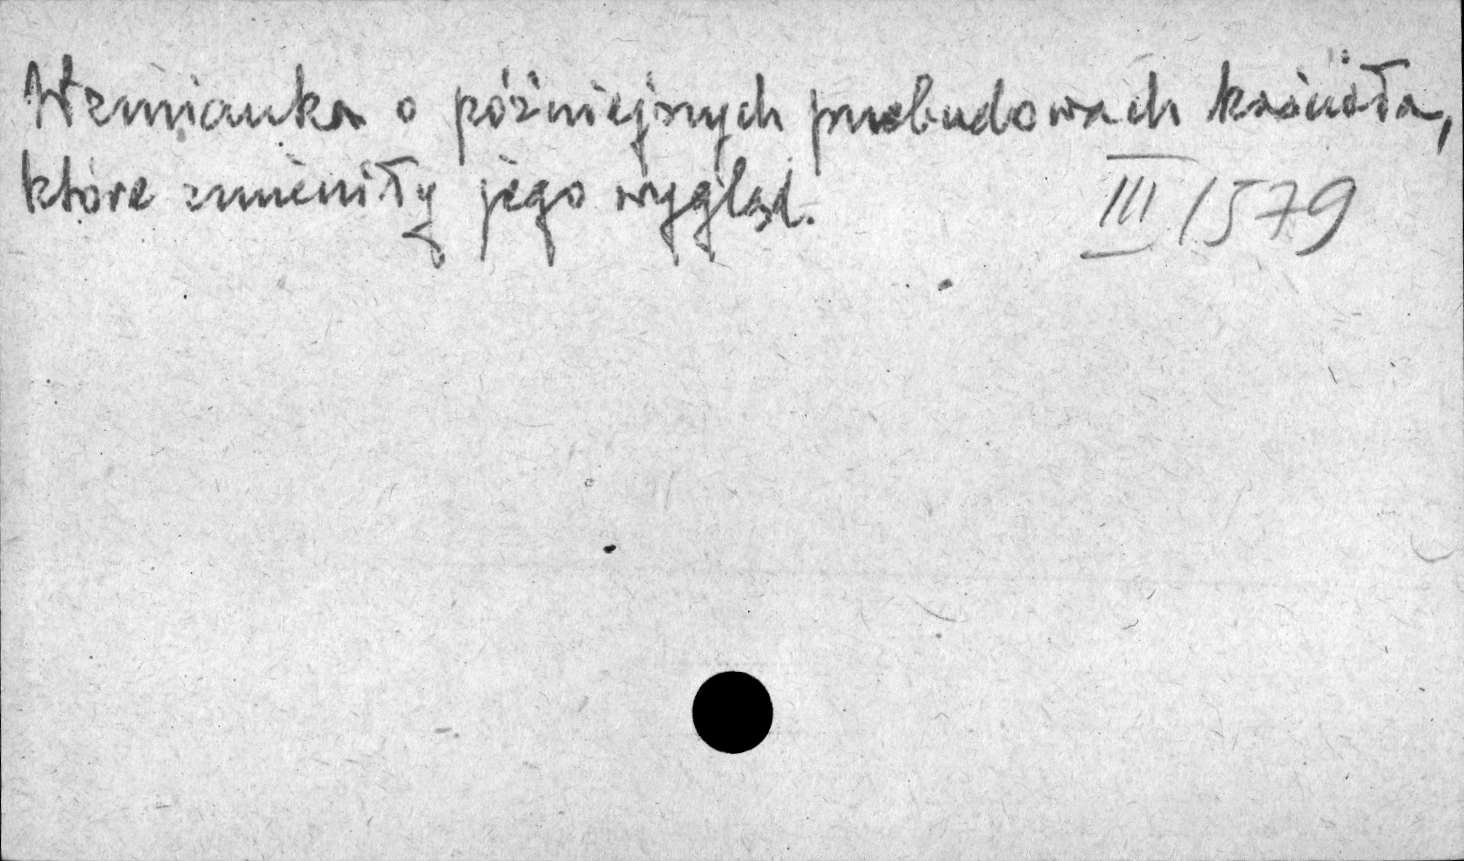 Wzmianka o późniejszych przebudowach kościoła,
które zmieniły jego wygląd. III 1579